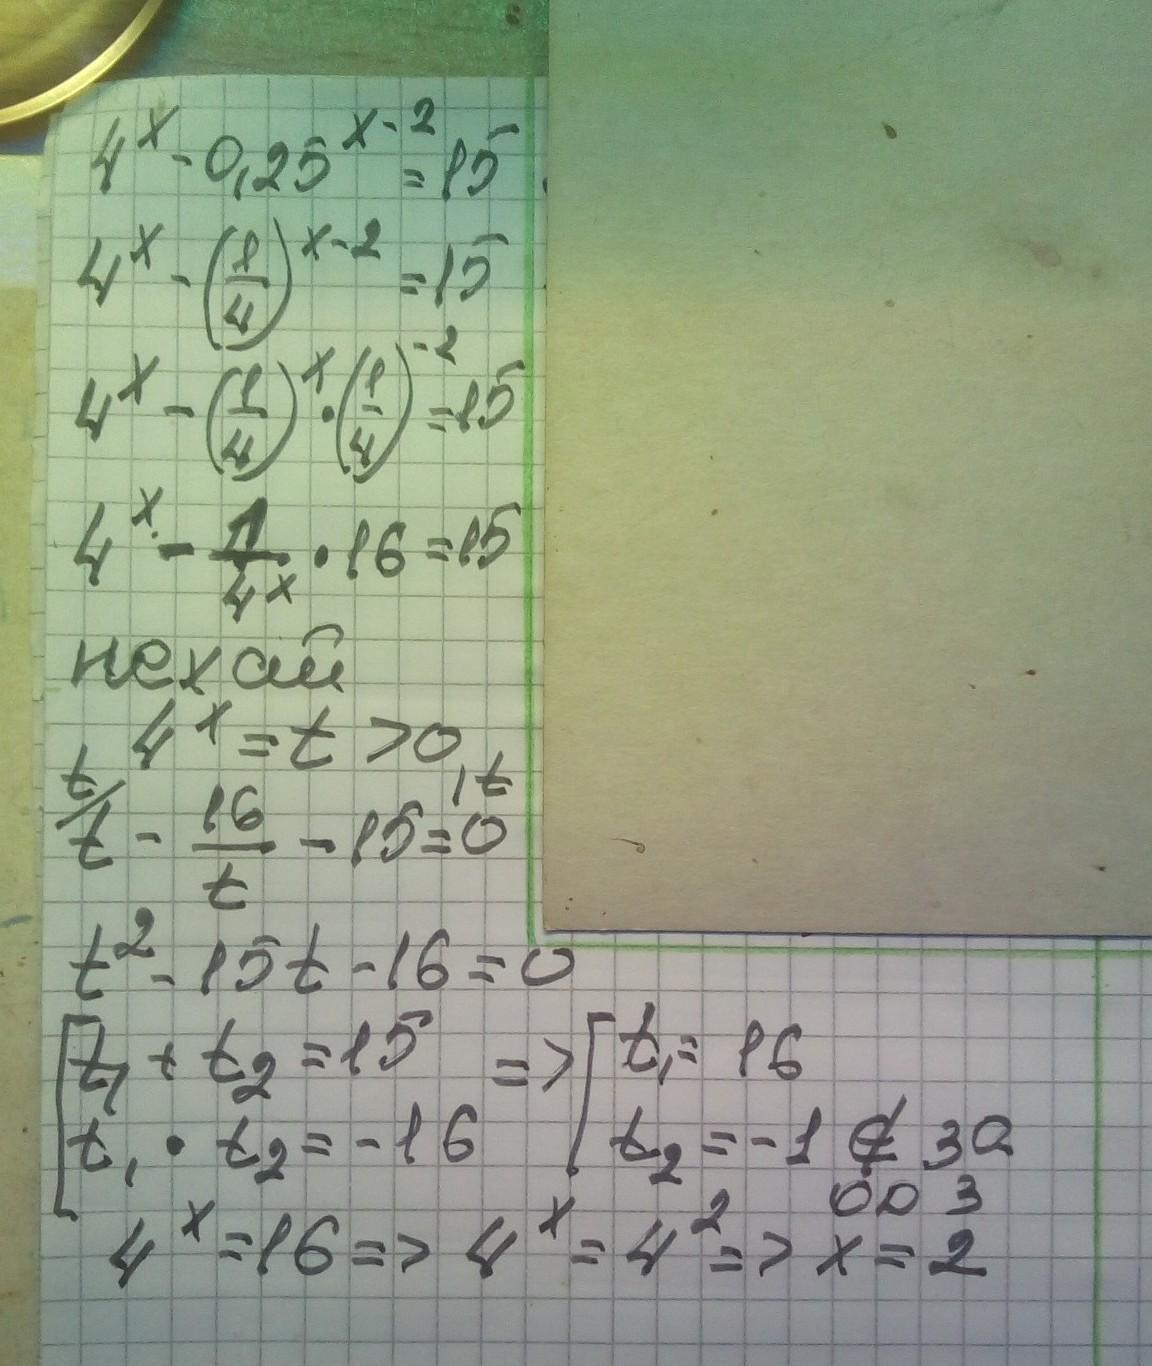 4^x - 0,25^(x-2) = 15
4^x - (1/4)^(x-2) = 15
4^x - (1/4)^x · (1/4)^(-2) = 15
4^x - 1/4^x · 16 = 15
нехай
4^x = t > 0
t/ ,t
t - 16/t - 15 = 0
t² - 15t - 16 = 0
[t₁ + t₂ = 15 => [t₁ = 16
t₁ · t₂ = -16 t₂ = -1 ∉ за
ОДЗ
4^x = 16 => 4^x = 4² => x = 2